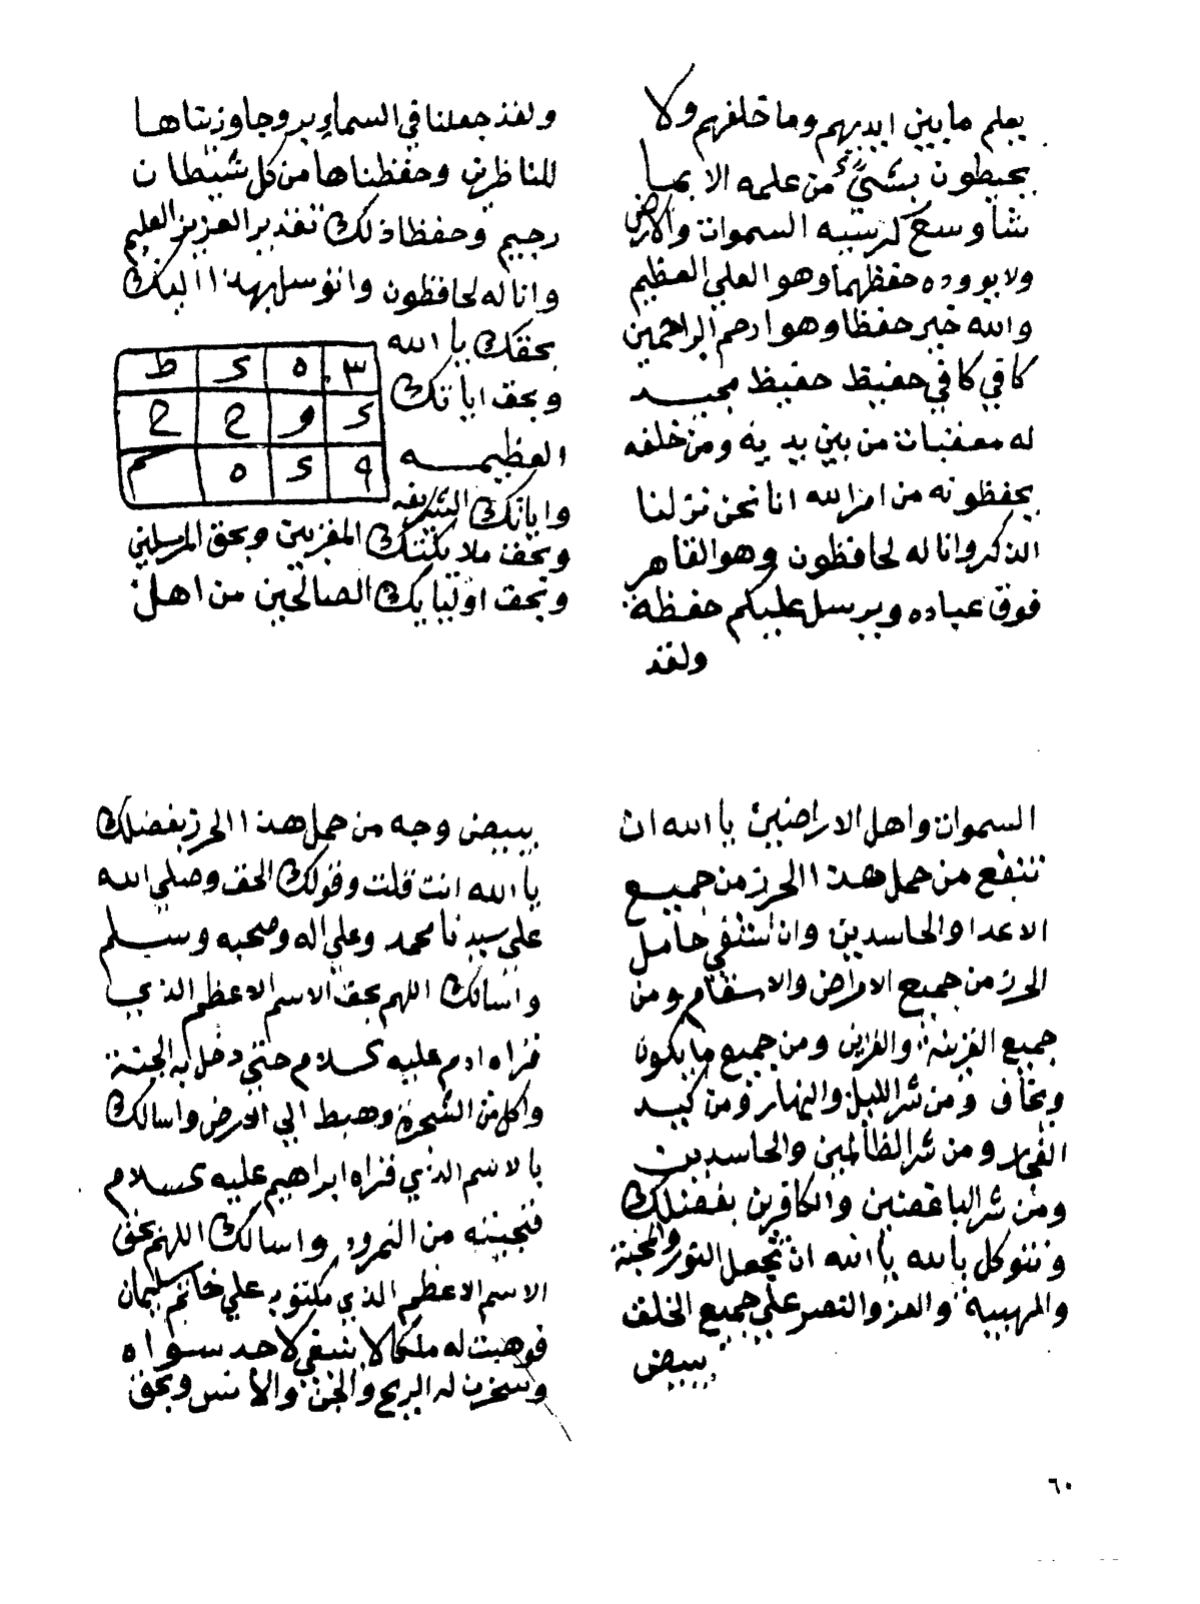 يعلم ما بين ايديهم وما خلفهم ولا
يحيطون بشيء من علمه الا بما
شا وسع كرسيه السموات والارض
ولا يووده حفظهما وهو العلي العظيم
والله خير حفظا وهو ارحم الراحمين
كافي كافي حفيظ حفيظ مجيد
له معقبات من بين يديه ومن خلفه
يحفظونه من امر الله انا نحن نزلنا
الذكر وانا له لحافظون وهو القاهر
فوق عباده ويرسل عليكم حفظة
ولقد
ولقد جعلنا في السماء بروجا وزيناها
للناظرين وحفظناها من كل شيطان
رجيم وحفظا ذلك تقدير العزيز العليم
وانا له لحافظون واتوسل بهذا اليك
بحقك يا الله
وبحق اياتك
العظيمه
واياتك الشريفه
٣ ٥ ك ط
ك و ح ح
٩ ك ٥
وبحق ملائكتك المقربين وبحق المرسلين
وبحق اوليايك الصالحين من اهل
السموات واهل الاراضين يا الله ان
تنفع من حمل هذا الحرز من جميع
الاعدا والحاسدين وان تشفي حامل
الحرز من جميع الامراض والاسقام ومن
جميع القرينة والقرين ومن جميع ما يكون
ويخاف ومن شر الليل والنهار ومن كيد
ومن شر الظالمين والحاسدين
ومن شر الباغضين والكافرين بفضلك
ونتوكل بالله يا الله ان تجعل النور والمحبة
والمهيبة والعز والنصر على جميع الخلق
يبيض
يبيض وجه من حمل هذا الحرز بفضلك
يا الله انت قلت وقولك الحق وصلي الله
علي سيدنا محمد وعلي اله وصحبه وسلم
واسالك اللهم بحق الاسم الاعظم الذي
قراه ادم عليه السلام حتي دخل به الجنة
واكل من الشجرة وهبط الي الارض واسالك
بالاسم الذي قراه ابراهيم عليه السلام
فنجيته من النمرود واسالك اللهم بحق
الاسم الاعظم الذي مكتوب علي خاتم سليمان
فوهبت له ملكا لا ينبغي لاحد سواه
وسخرت له الريح والجن والانس وبحق
٦٠